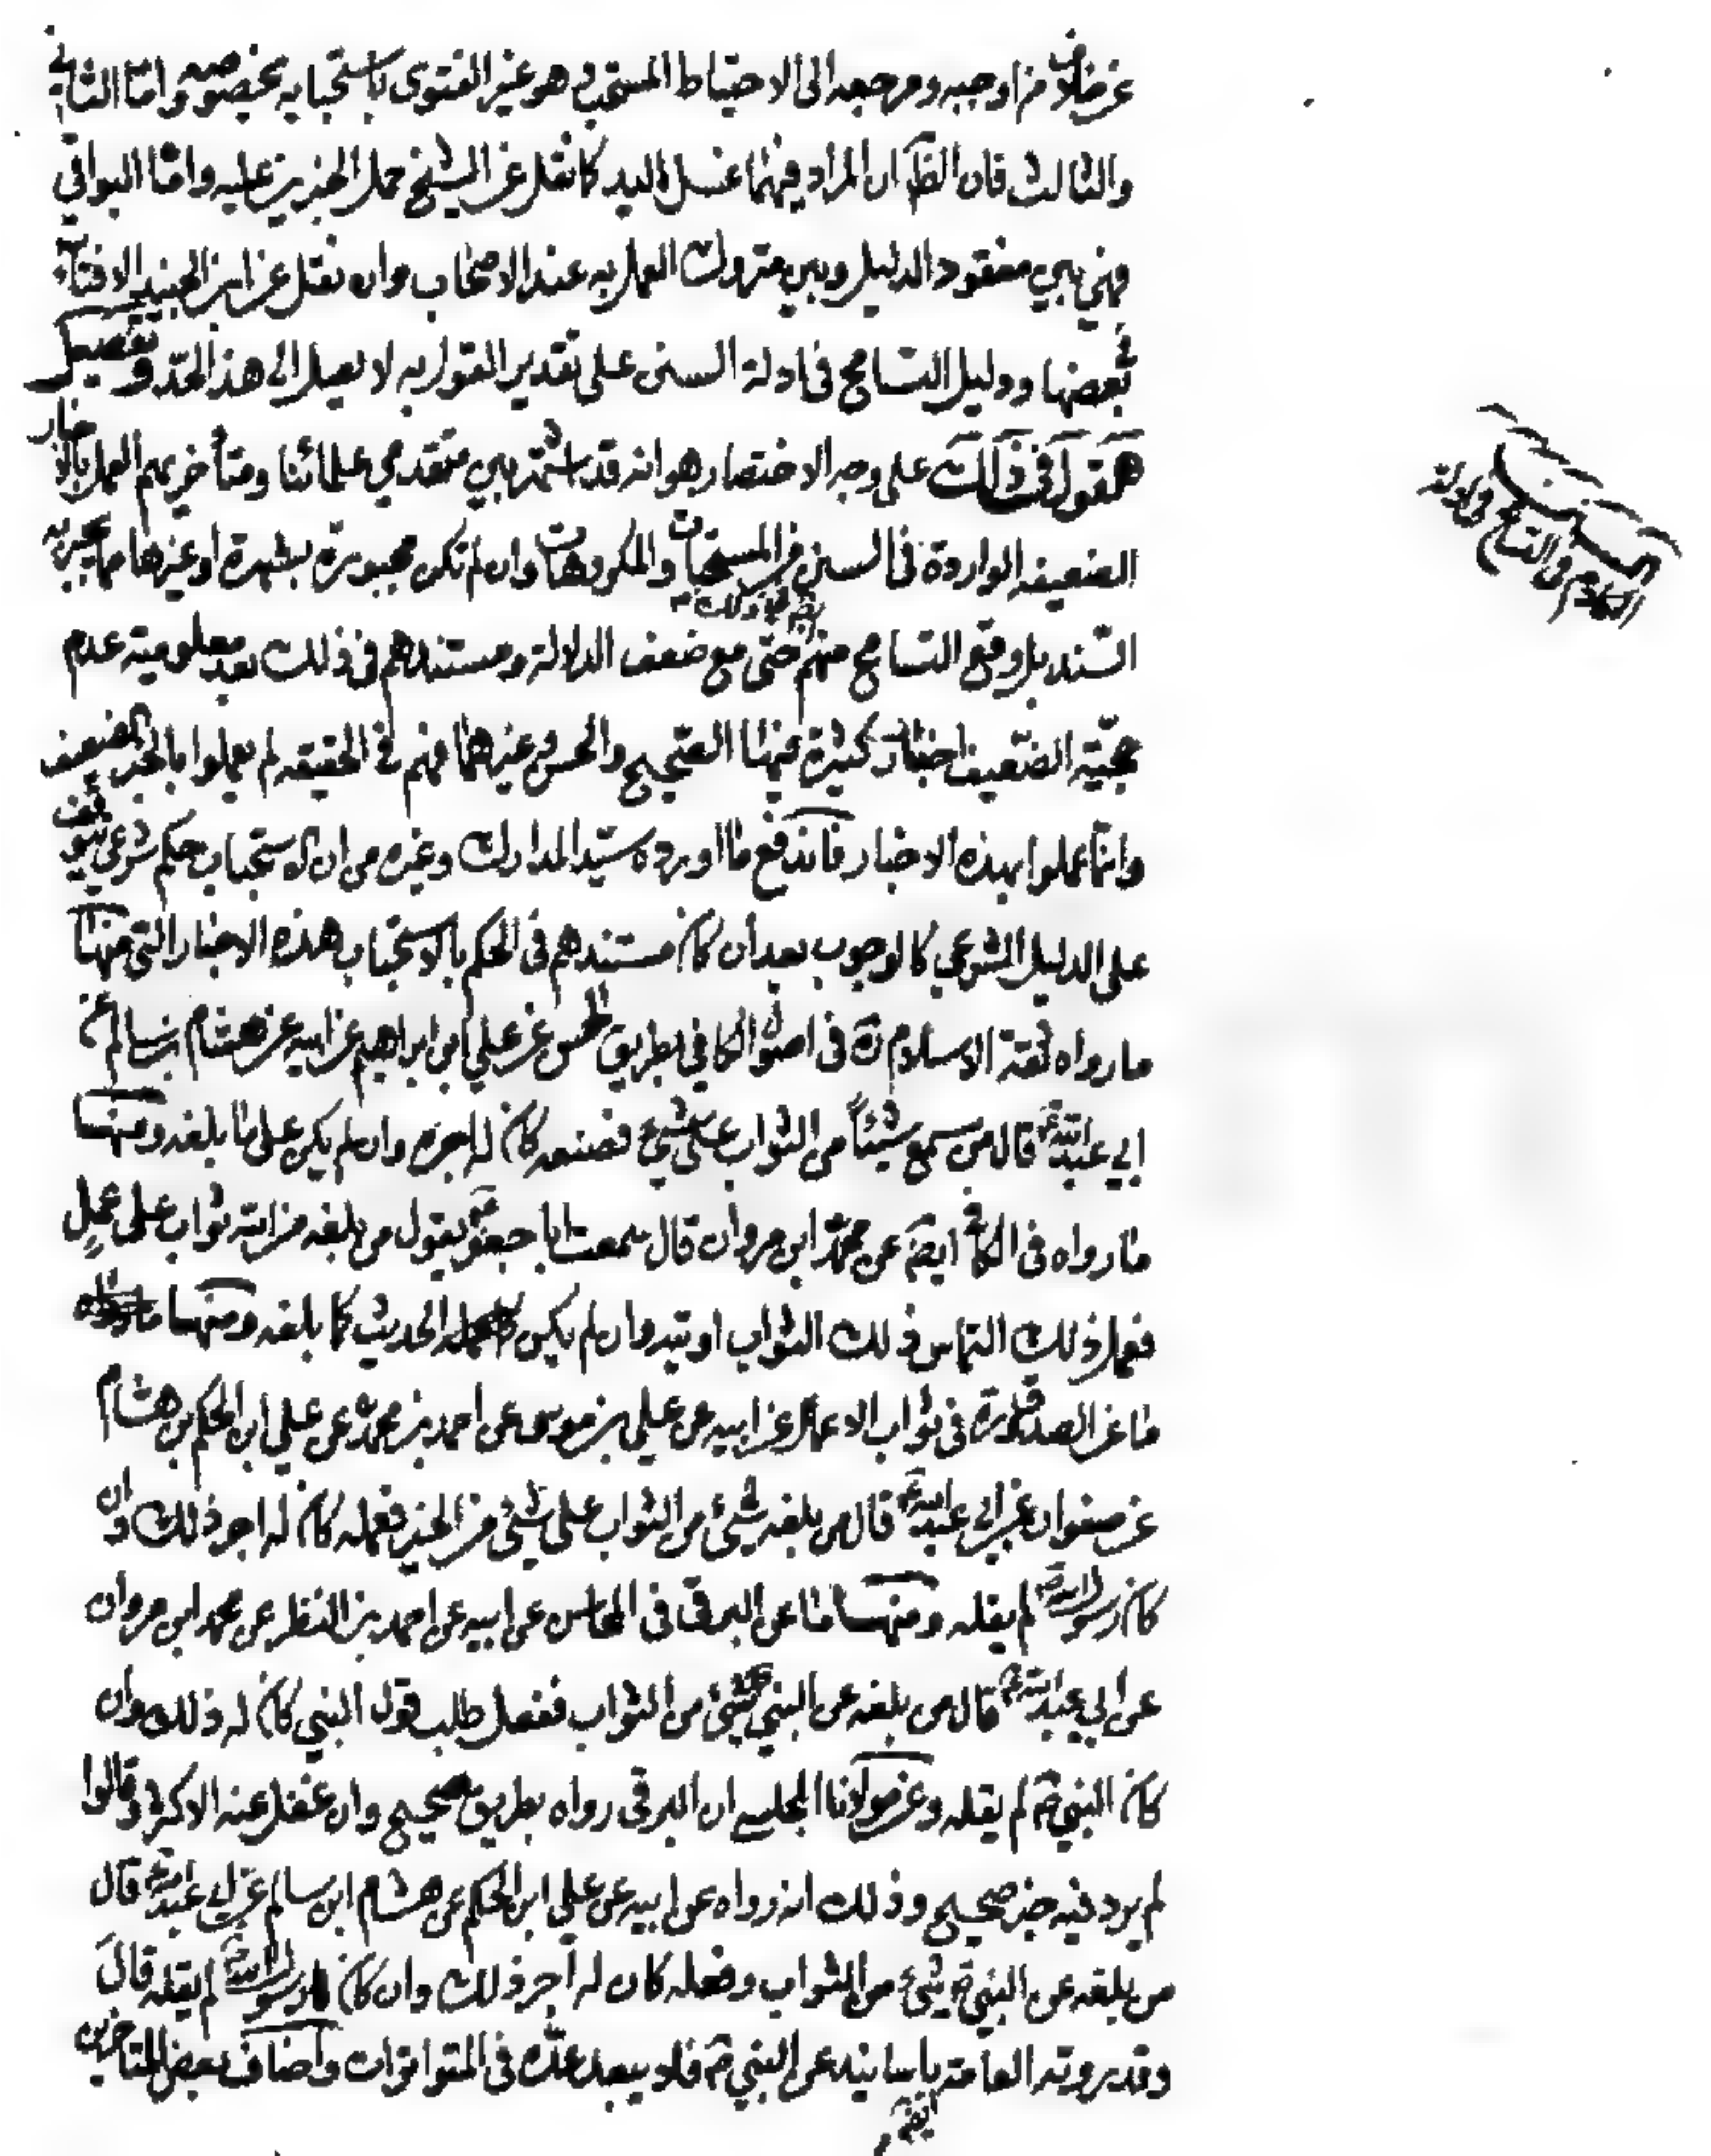 عن خلاف من اوجبه ومرجعه الى الاحتياط المستحب وهو غير الفتوى باستحبابه بخصوصه واما الثاني
والثالث فان الظ ان المراد فيهما غسل اليد كما نقل عن الشيخ حمل الخبرين عليه واما البواقي
فهي بين مفقود الدليل وبين متروك العمل به عند الاصحاب وان نقل عن ابن الجنيد الافتاء
ببعضها ودليل التسامح في ادلة السنن على تقدير القول به لا يصل الى هذا الحد وتفصيل
القول في ذلك على وجه الاختصار هو انه قد اشتهر بين متقدمي علمائنا ومتأخريهم العمل بالاخبار
الضعيفه الواردة في السنن من المستحبات والمكروهات وان لم تكن مجبورة بشهرة او غيرها مما يجبر به
السند بل وقع التسامح منهم حتى مع ضعف الدلالة ومستندهم في ذلك بعد معلومية عدم
حجية الضعيف اخبار كثيرة فيها الصحيح والحسن وغيرهما فهم في الحقيقه لم يعملوا بالخبر الضعيف
وانما عملوا بهذه الاخبار فاندفع ما اورده سيد المدارك وغيره من ان الاستحباب حكم شرعي يتوقف
على الدليل الشرعي كالوجوب بعد أن كان مستندهم في الحكم بالاستحباب هذه الاخبار التي منها
ما رواه ثقة الاسلام ره في اصول الكافي بطريق الحسن عن علي ابن ابراهيم عن ابيه عن هشام بن سالم عن
ابي عبد الله ع قال من سمع شيئاً من الثواب على شيئ فصنعه كان له اجره وان لم يكن على ما بلغه ومنها
ما رواه في الكافي ايضم عن محمد ابن مروان قال سمعت ابا جعفر ع يقول من بلغه من الله ثواب على عملٍ
فعمل ذلك التماس ذلك الثواب اوتيه وان لم يكن الحديث كما بلغه ومنها
ما عن الصدوق ره في ثواب الاعمال عن ابيه عن علي بن موسى عن احمد بن محمد عن علي ابن الحكم بن هشام
عن صفوان عن ابي عبد الله ع قال من بلغه شيئ من الثواب على شيئ من الخير فعمله كان له اجر ذلك وان
كان رسول الله ص لم يقله ومنها ما عن البرقي في المحاسن عن ابيه عن احمد بن النظر عن محمد ابن مروان
عن ابي عبد الله ع قال من بلغه عن النبي ص شيئ من الثواب ففعل طلب قول النبي كان له ذلك وان
كان النبي ص لم يقله وعن مولانا المجلسي ان البرقي رواه بطريق صحيح وان غفل عنه الاكثر وقالوا
لم يرد فيه خبر صحيح وذلك انه رواه عن ابيه عن علي ابن الحكم عن هشام ابن سالم عن ابي عبد الله ع قال
من بلغه عن النبي ص شيئ من الثواب وفعله كان له اجر ذلك وان كان رسول الله ص لم يقله قال
وقد روته العامة باسانيد عن النبي ص فلا يبعد عده في المتواترات واضاف بعض المتاخرين
الكلام في التسامح في ادلة
السنن